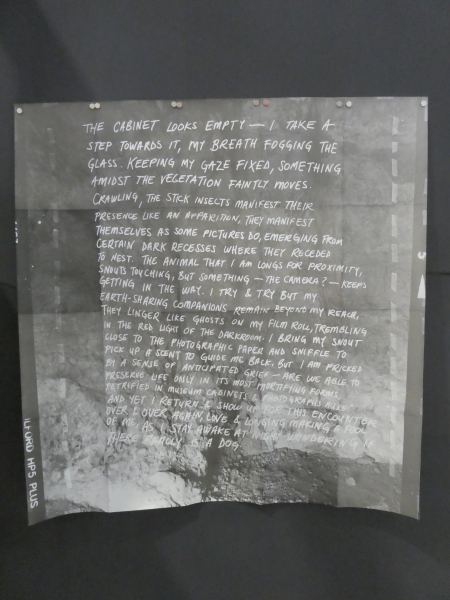 THE CABINET LOOKS EMPTY — I TAKE A
STEP TOWARDS IT, MY BREATH FOGGING THE
GLASS. KEEPING MY GAZE FIXED, SOMETHING
AMIDST THE VEGETATION FAINTLY MOVES.
CRAWLING, THE STICK INSECTS MANIFEST THEIR
PRESENCE LIKE AN APPARITION, THEY MANIFEST
THEMSELVES AS SOME PICTURES DO, EMERGING FROM
CERTAIN DARK RECESSES WHERE THEY RECEDED
TO NEST. THE ANIMAL THAT I AM LONGS FOR PROXIMITY,
SNOUTS TOUCHING, BUT SOMETHING — THE CAMERA? — KEEPS
GETTING IN THE WAY. I TRY & TRY BUT MY
EARTH-SHARING COMPANIONS REMAIN BEYOND MY REACH,
THEY LINGER LIKE GHOSTS ON MY FILM ROLL, TREMBLING
IN THE RED LIGHT OF THE DARKROOM. I BRING MY SNOUT
CLOSE TO THE PHOTOGRAPHIC PAPER AND SNIFFLE TO
PICK UP A SCENT TO GUIDE ME BACK. BUT I AM PRICKED
BY A SENSE OF ANTICIPATED GRIEF — ARE WE ABLE TO
PRESERVE LIFE ONLY IN ITS MOST MORTIFYING FORMS,
PETRIFIED IN MUSEUM CABINETS & PHOTOGRAPHS ALIKE
AND YET I RETURN & SHOW UP FOR THIS ENCOUNTER
OVER & OVER AGAIN, LOVE & LONGING MAKING A FOOL
OF ME, AS I STAY AWAKE AT NIGHT WONDERING IF
THERE REALLY IS A DOG.
ILFORD HP5 PLUS